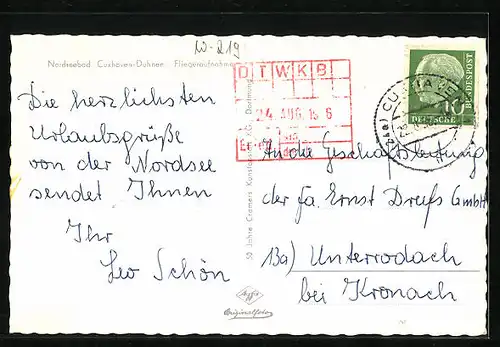 W-219
Nordseebad Cuxhaven-Duhnen Fliegeraufnahme
DTWKB
24. AUG. 19 6
DEUTSCHE
BUNDESPOST
10
Die herzlichsten
Urlaubsgrüße
von der Nordsee
sendet Ihnen
Ihr
Leo Schön
50 Jahre Cramers Kunstanstalt KG, Dortmund
Agfa
Originalfoto
An die Geschäftsleitung
der fa. Ernst Dreefs GmbH
13a) Unterrodach
bei Kronach